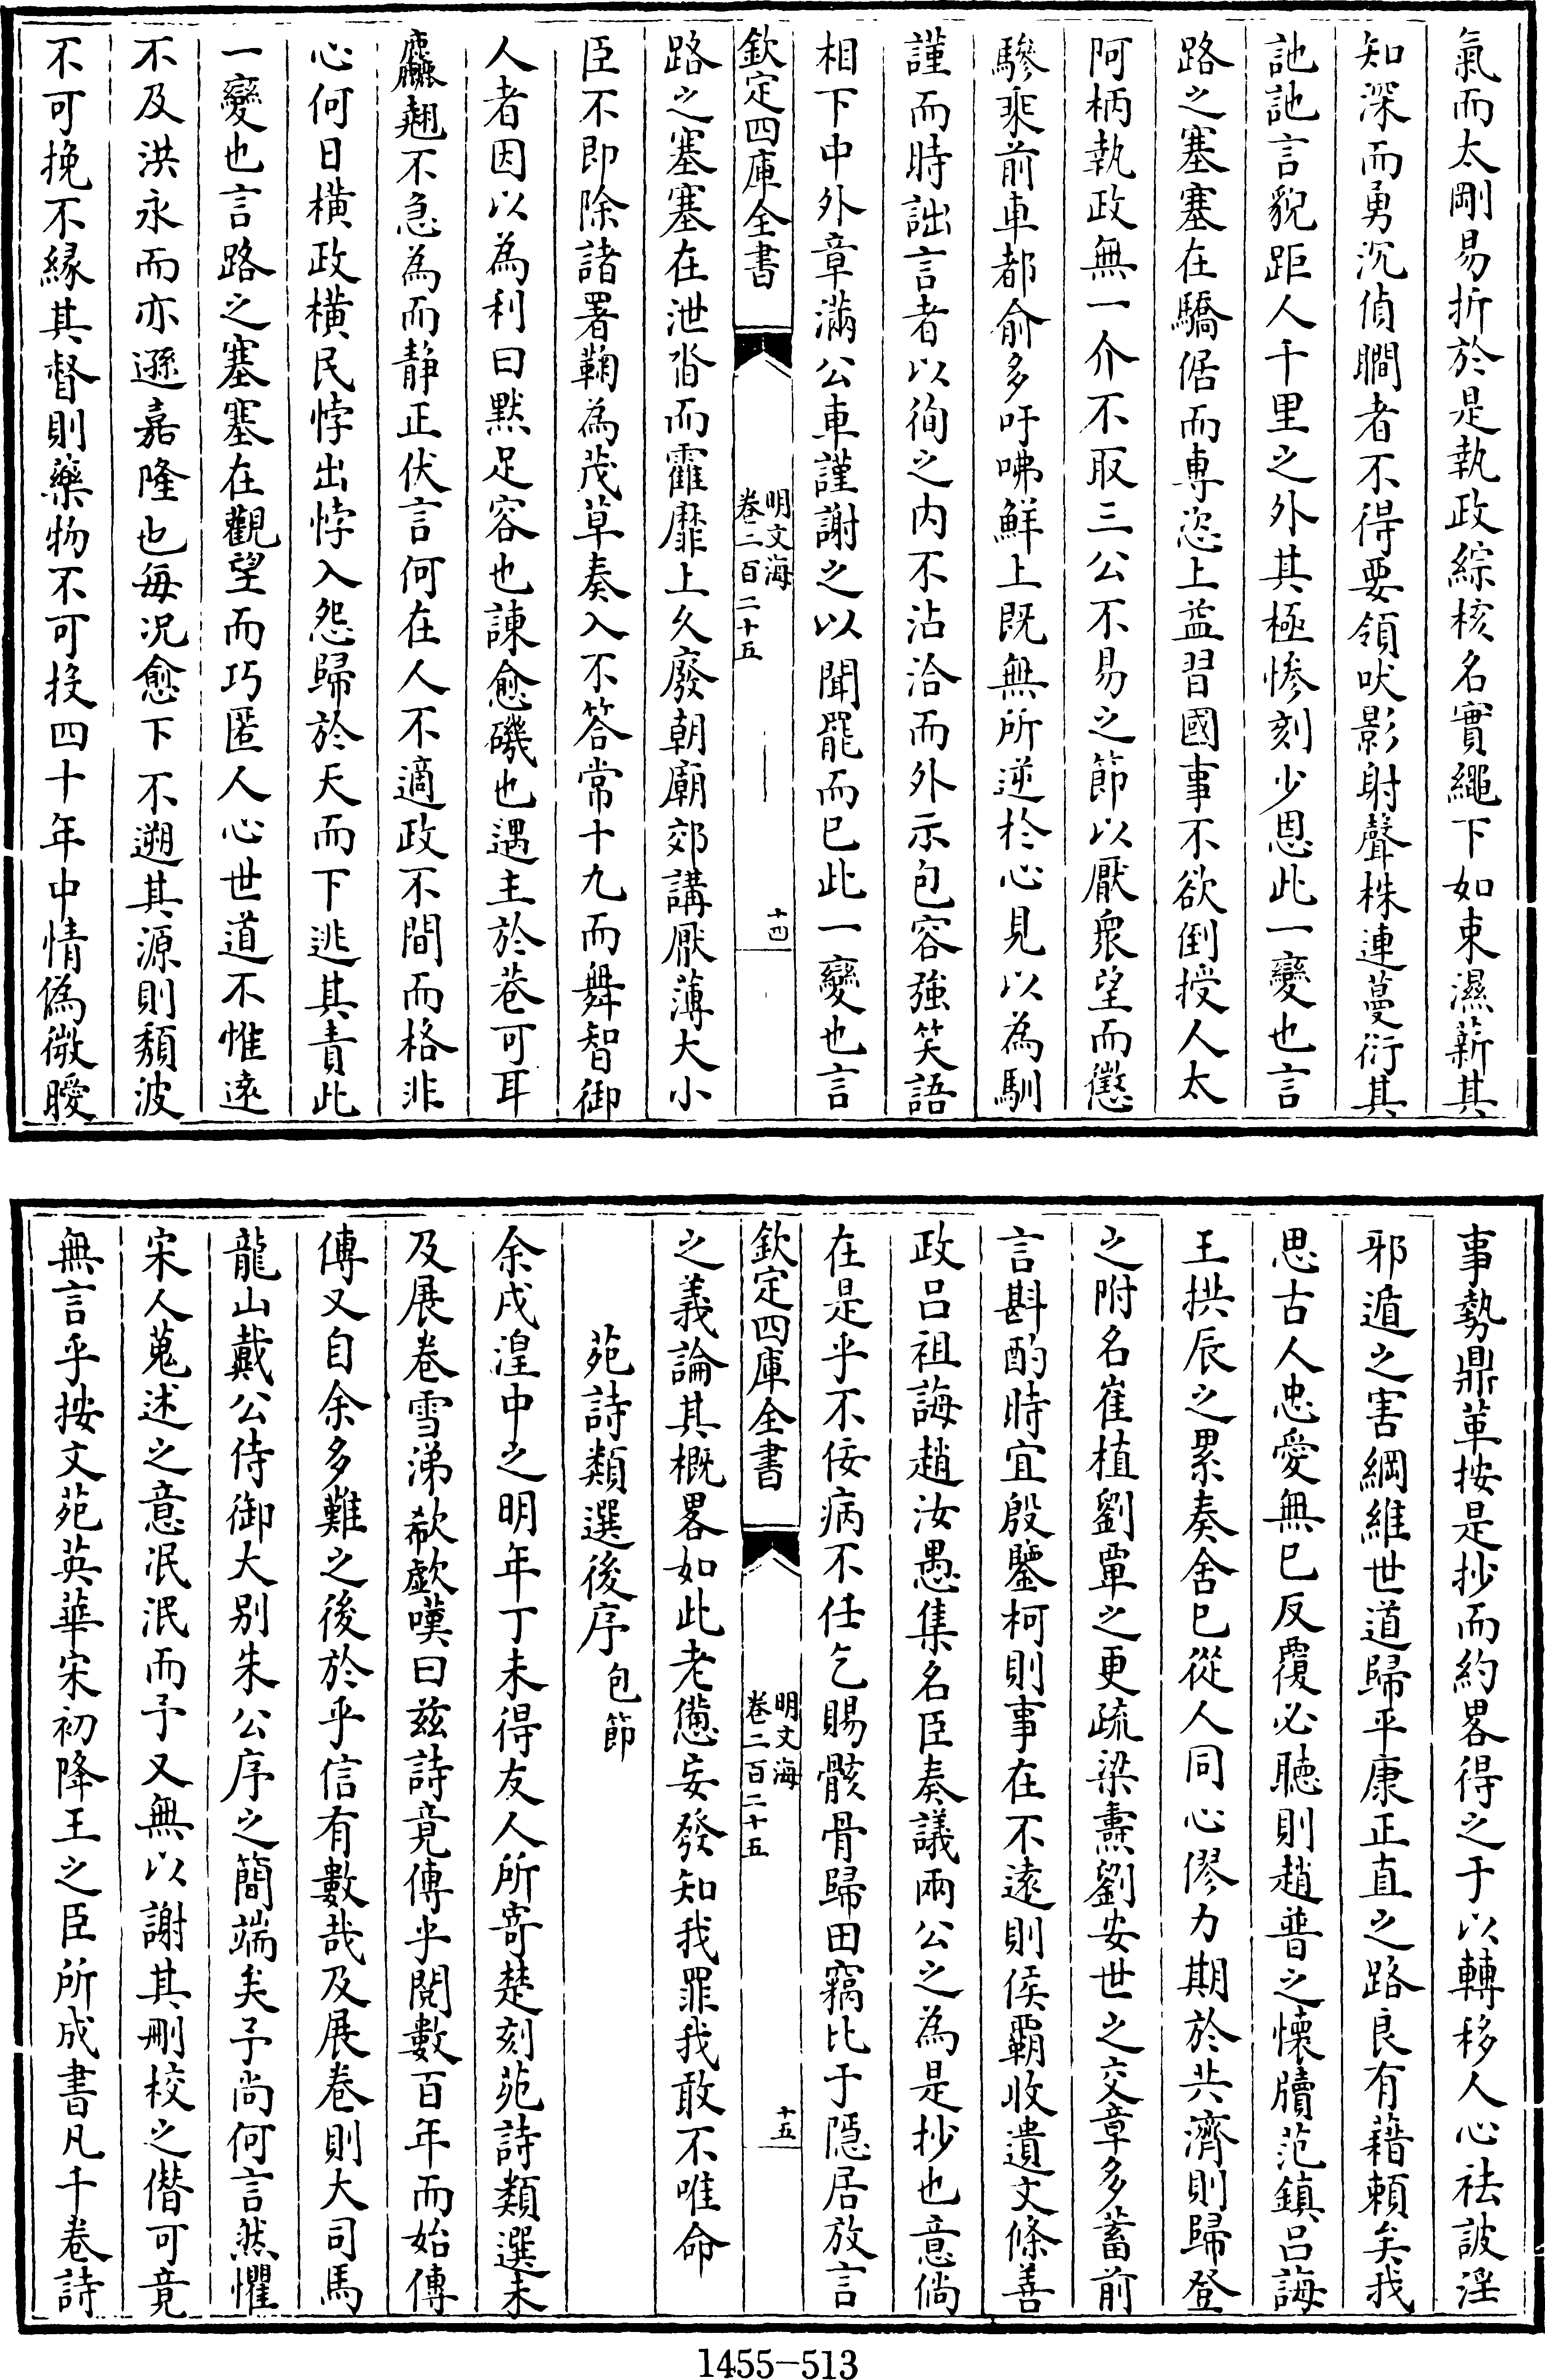 氣而太剛易折於是執政綜核名實繩下如束濕薪其
知深而勇沉偵瞷者不得要領吠影射聲株連蔓衍其
訑訑言貌距人千里之外其極慘刻少恩此一變也言
路之塞塞在驕倨而專恣上益習國事不欲倒授人太
阿柄執政無一介不取三公不易之節以厭衆望而懲
驂乘前車都俞多吁咈鮮上既無所逆於心見以為馴
謹而時詘言者以徇之内不沾洽而外示包容強笑語
相下中外章滿公車謹謝之以聞罷而已此一變也言
欽定四庫全書
明文海
卷二百二十五
十四
路之塞塞在泄沓而靃靡上久廢朝廟郊講厭薄大小
臣不即除諸署鞠為茂草奏入不答常十九而舞智御
人者因以為利曰默足容也諫愈磯也遇主於巷可耳
翹不急為而靜正伏言何在人不適政不間而格非
心何日橫政橫民悖出悖入怨歸於天而下逃其責此
一變也言路之塞塞在觀望而巧匿人心世道不惟遠
不及洪永而亦遜嘉隆也每况愈下不遡其源則頹波
不可挽不緣其督則藥物不可投四十年中情偽微曖
事勢鼎革按是抄而約畧得之于以轉移人心祛詖淫
邪遁之害綱維世道歸平康正直之路良有藉賴矣我
思古人忠愛無已反覆必聽則趙普之懷牘范鎮吕誨
王拱辰之累奏舍已從人同心僇力期於共濟則歸登
之附名崔植劉覃之更疏梁燾劉安世之交章多蓄前
言斟酌時宜殷鑒柯則事在不遠則侯霸收遺文條善
政吕祖誨趙汝愚集名臣奏議兩公之為是抄也意倘
在是乎不佞病不任乞賜骸骨歸田竊比于隱居放言
欽定四庫全書
明文海
卷二百二十五
十五
之義論其概畧如此老憊妄發知我罪我敢不唯命
苑詩類選後序 包節
余戍湟中之明年丁未得友人所寄楚刻苑詩類選未
及展卷雪涕欷歔嘆曰兹詩竟傳乎閱數百年而始傳
傳又自余多難之後於乎信有數哉及展卷則大司馬
龍山戴公侍御大别朱公序之簡端矣予尚何言然懼
宋人蒐述之意泯泯而予又無以謝其刪校之僭可竟
無言乎按文苑英華宋初降王之臣所成書凡千卷詩
1455-513